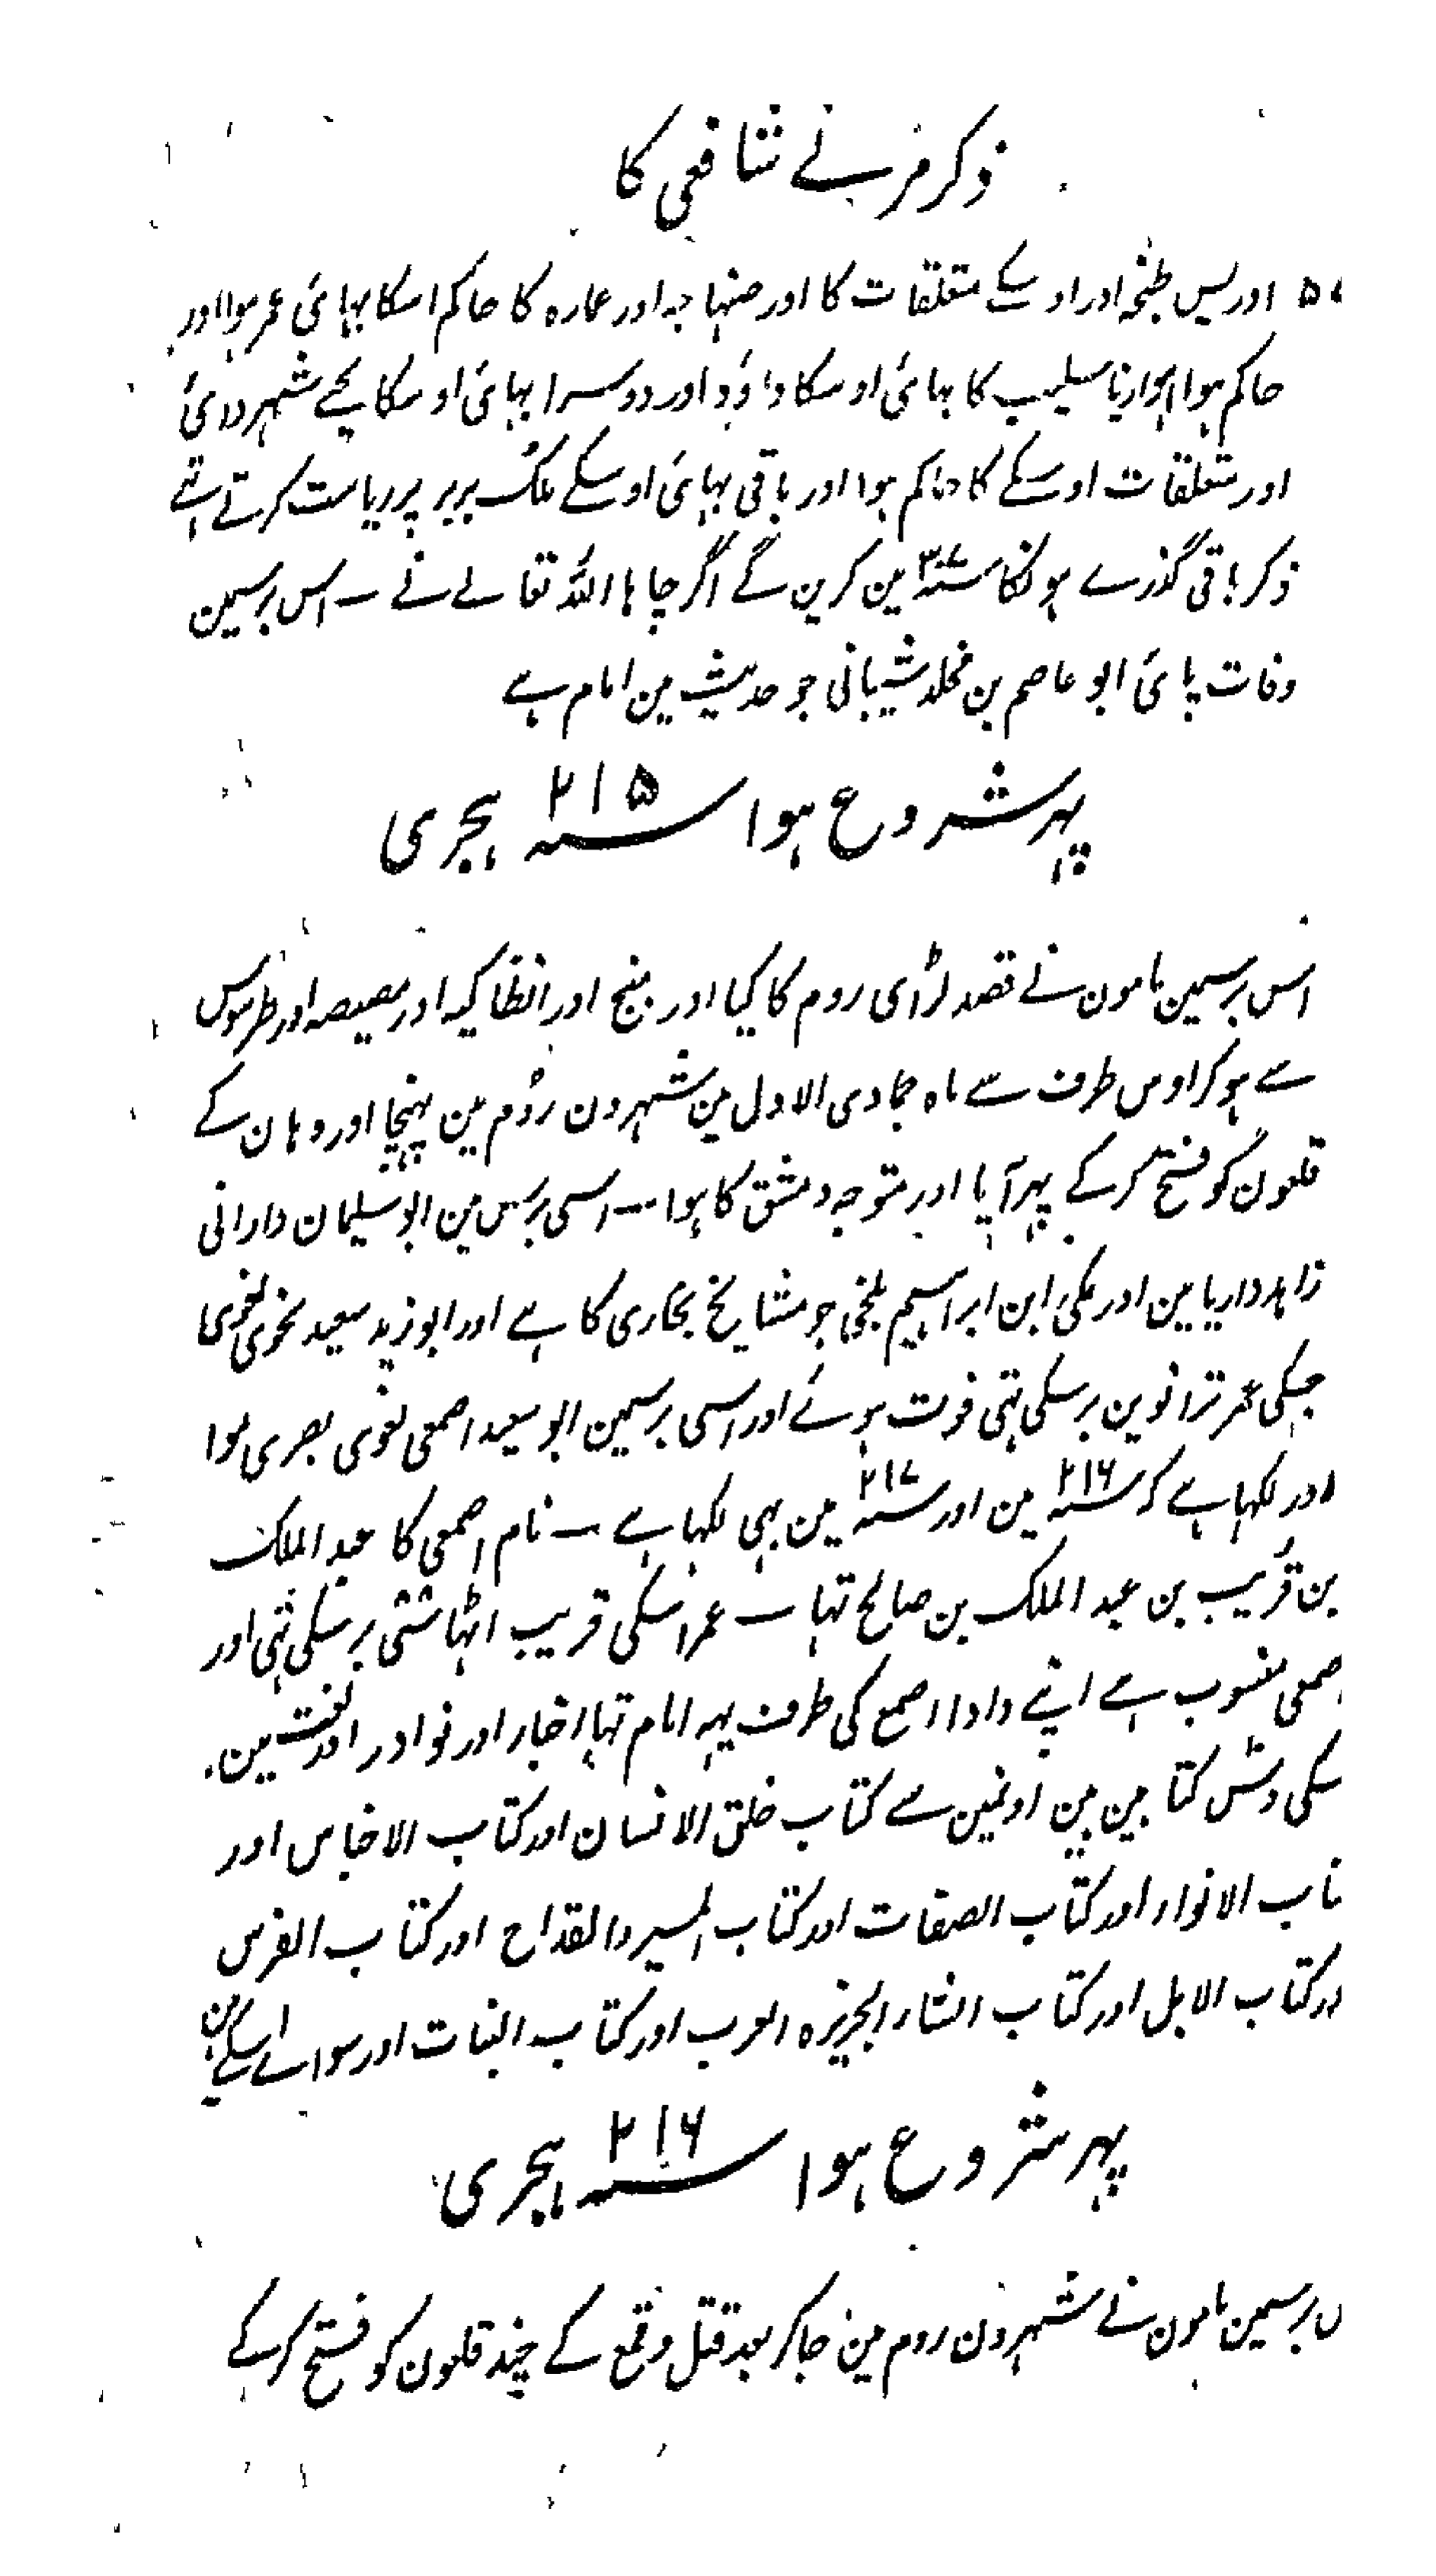 ذکر مزنے شافعی کا
ادریس طنجہ اور اوسکے متعلقات کا اور صنہاجہ اور عمارہ کا حاکم اسکا بہائی عمر ہوا اور
حاکم ہوا ہوارہ کا بہائی اوسکا داؤد اور دوسرا بہائی اوسکا یحیے شہر
اور متعلقات اوسکے کا حاکم ہوا اور باقی بہائی اوسکے ملک بربر پر ریاست کرتے تہے
ذکر باقی گذرے ہونکا سنہ ۳۰۷ مین کرین گے اگر چاہا اللہ تعالے نے — اس برسمین
وفات پائی ابو عاصم بن مخلد شیبانی جو حدیث مین امام ہے
پہر شروع ہوا سنہ ۲۱۵ ہجری
اس برسمین مامون نے قصد لڑائی روم کا کیا اور منبج اور انطاکیہ اور مصیصہ اور طرسوس
سے ہوکر اوس طرف سے ماہ جمادی الاول مین شہرون روم مین پہنچا اور وہان کے
قلعون کو فتح کرکے پہر آیا اور متوجہ دمشق کا ہوا — اسی برس مین ابو سلیمان دارانی
زاہد داریا مین اور مکی ابن ابراہیم بلخی جو مشایخ بخاری کا ہے اور ابو زید سعید نحوی لغوی
جسکی عمر ترانوین برسکی تہی فوت ہوئے اور اسی برسمین ابو سعید اصمعی لغوی بصری موا
اور لکہا ہے کہ سنہ ۲۱۶ مین اور سنہ ۲۱۷ مین بہی لکہا ہے — نام اصمعی کا عبد الملک
بن قریب بن عبد الملک بن صالح تہا — عمر اسکی قریب اٹہاسی برسکی تہی اور
صمعی منسوب ہے اپنے دادا اصمع کی طرف یہہ امام تہا اخبار اور نوادر اور لغت مین
سکی دس کتابین ہین اونمین سے کتاب خلق الانسان اور کتاب الاجناس اور
تاب الانوار اور کتاب الصفات اور کتاب المیسر والقداح اور کتاب الفرس
ور کتاب الابل اور کتاب الشاء الجزیرہ العرب اور کتاب النبات اور سواے اسکے ہین
پہر شروع ہوا سنہ ۲۱۶ ہجری
س برسمین مامون نے شہرون روم مین جاکر بعد قتل و قمع کے چند قلعون کو فتح کرکے